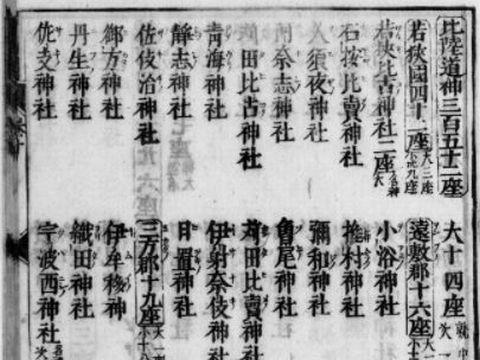 北陸道神三百五十二座 大十四座
若狭國四十二座 大三座 小卅九座 遠敷郡十六座
若狭比古神社二座 名神大 小浴神社
石桉比賣神社 椎村神社
久須夜神社 彌和神社
阿奈志神社 曾尾神社
苅田比古神社 苅田比賣神社
青海神社 伊射奈伎神社
静志神社 日置神社
佐伎治神社 三方郡十九座
御方神社 伊牟移神
丹生神社 織田神社
佐支神社 宇波西神社